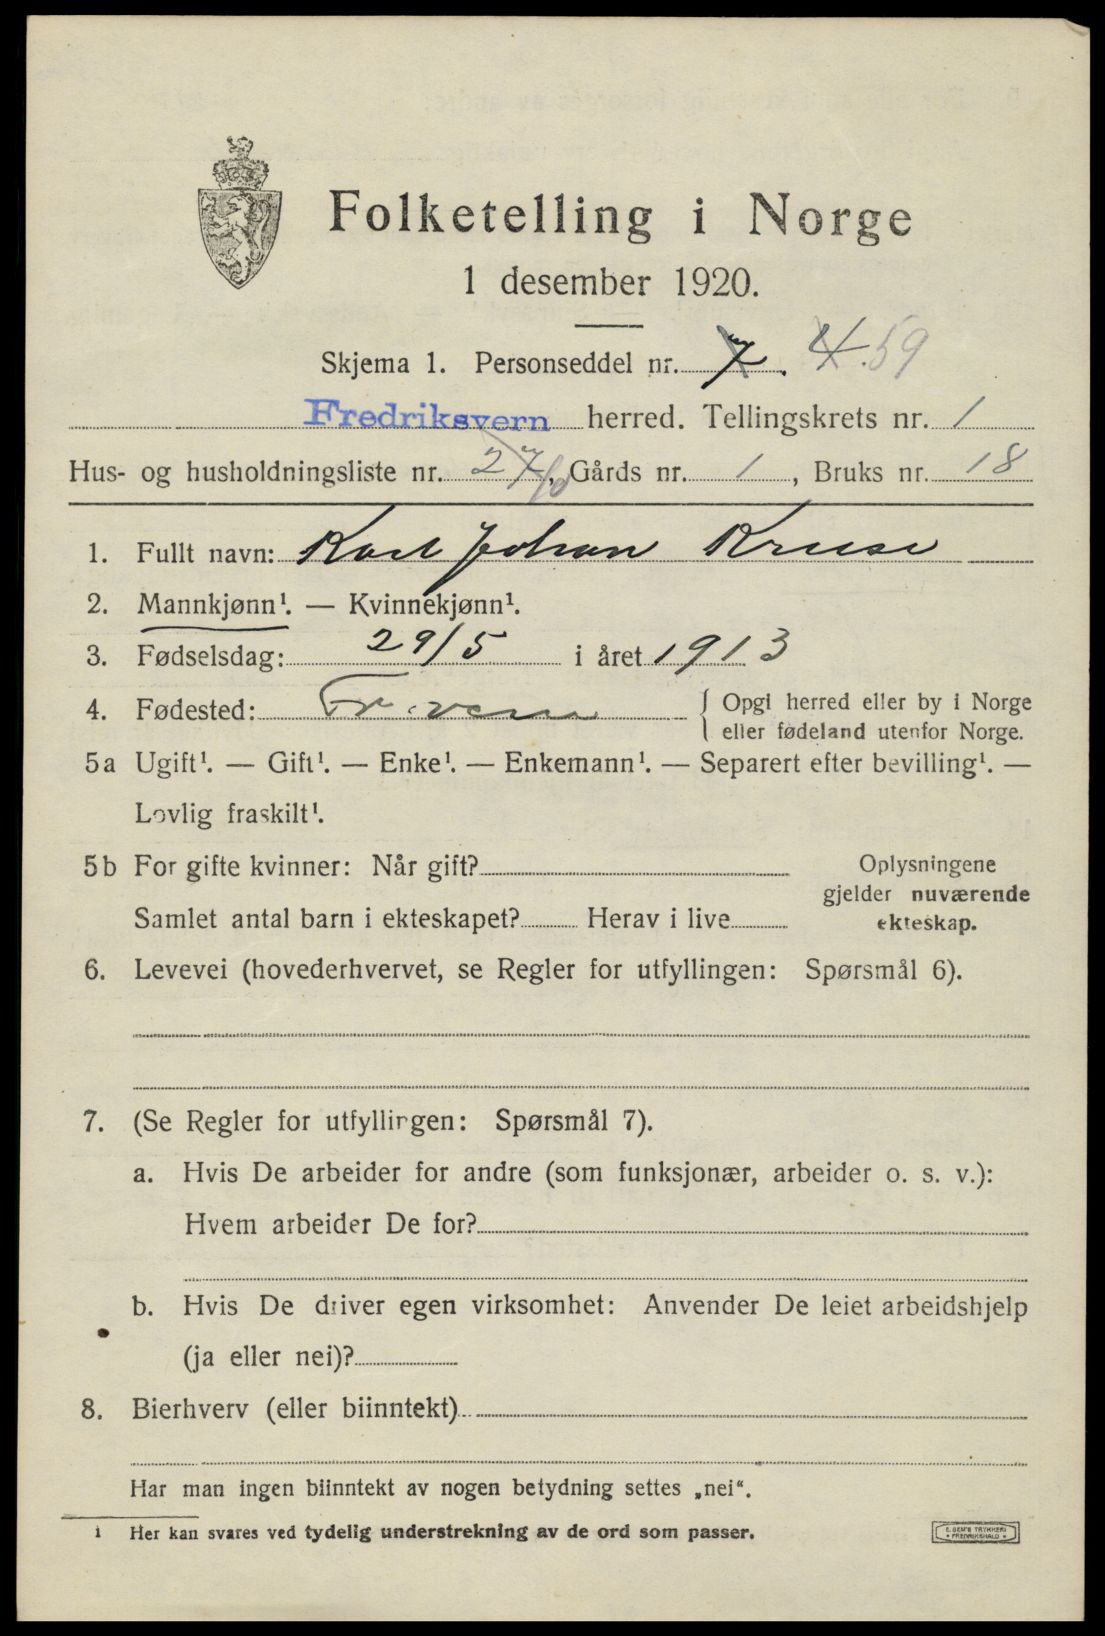 Folketelling i Norge
1 desember 1920.
Skjema 1. Personseddel nr. 7. 4 59
Fredriksvern herred. Tellingskrets nr. 1
Hus- og husholdningsliste nr. 27, Gårds nr. 1, Bruks nr. 18
1. Fullt navn: Karl Johan Kruse
2. Mannkjønn¹. — Kvinnekjønn¹.
3. Fødselsdag: 29/5 i året 1913
4. Fødested: Fr.vern { Opgi herred eller by i Norge
eller fødeland utenfor Norge.
5a Ugift¹. — Gift¹. — Enke¹. — Enkemann¹. — Separert efter bevilling¹. —
Lovlig fraskilt¹.
5b For gifte kvinner: Når gift?
Samlet antal barn i ekteskapet? Herav i live
Oplysningene
gjelder nuværende
ekteskap.
6. Levevei (hovederhvervet, se Regler for utfyllingen: Spørsmål 6).
7. (Se Regler for utfyllingen: Spørsmål 7).
a. Hvis De arbeider for andre (som funksjonær, arbeider o. s. v.):
Hvem arbeider De for?
b. Hvis De driver egen virksomhet: Anvender De leiet arbeidshjelp
(ja eller nei)?
8. Bierhverv (eller biinntekt)
Har man ingen biinntekt av nogen betydning settes „nei“.
¹ Her kan svares ved tydelig understrekning av de ord som passer.
E. SEM'S TRYKKERI
FREDRIKSHALD